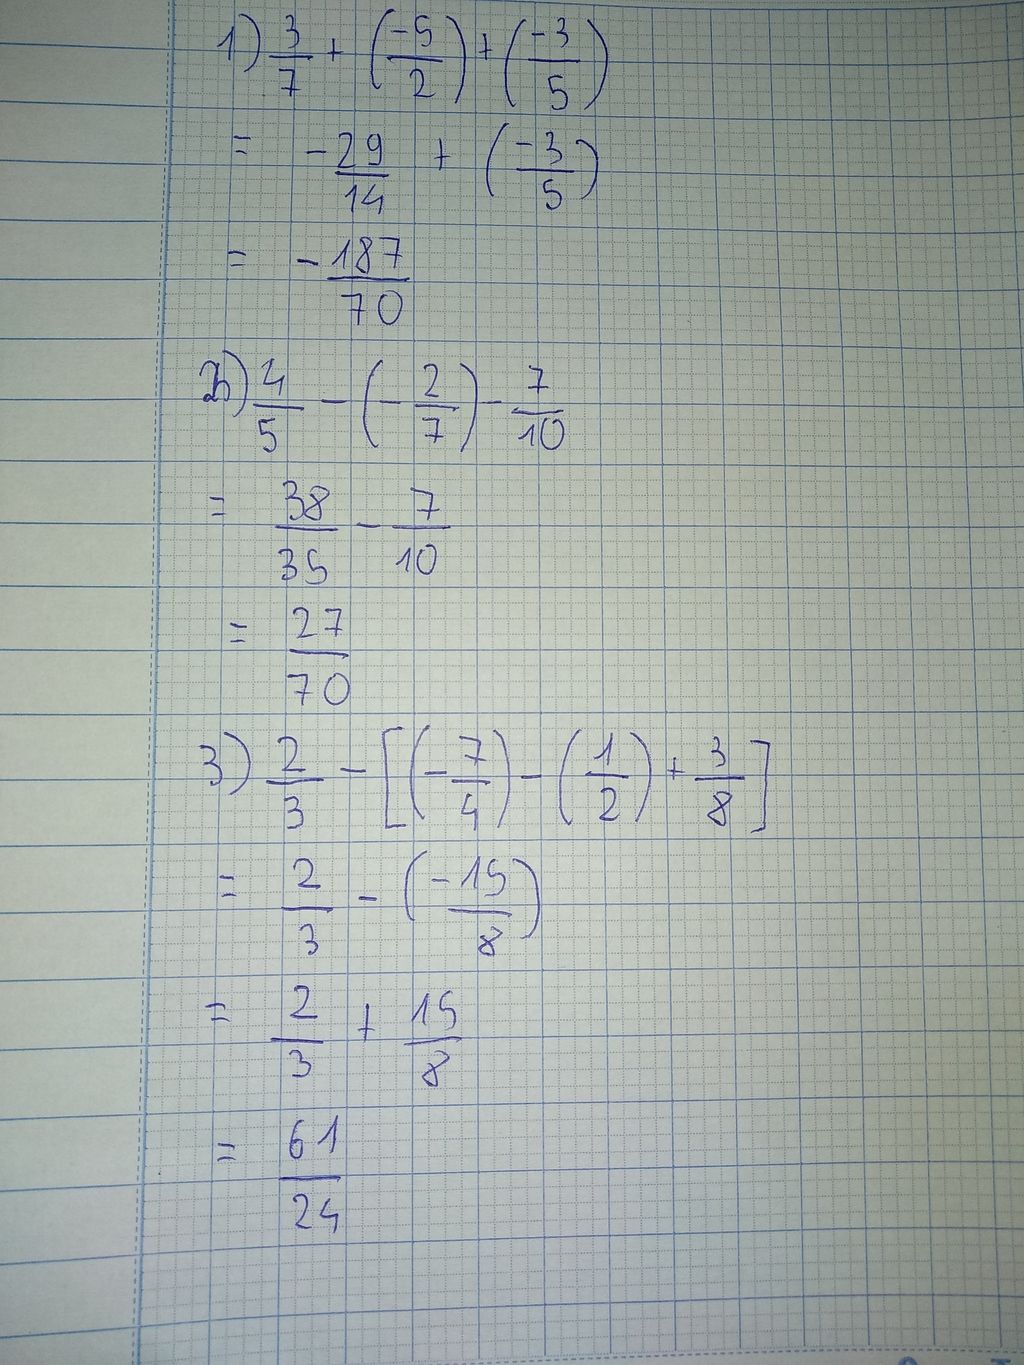 1) 3/7 + (-5/2) + (-3/5)
= -29/14 + (-3/5)
= -187/70
2) 4/5 - (-2/7) - 7/10
= 38/35 - 7/10
= 27/70
3) 2/3 - [(-7/4) - (1/2) + 3/8]
= 2/3 - (-15/8)
= 2/3 + 15/8
= 61/24